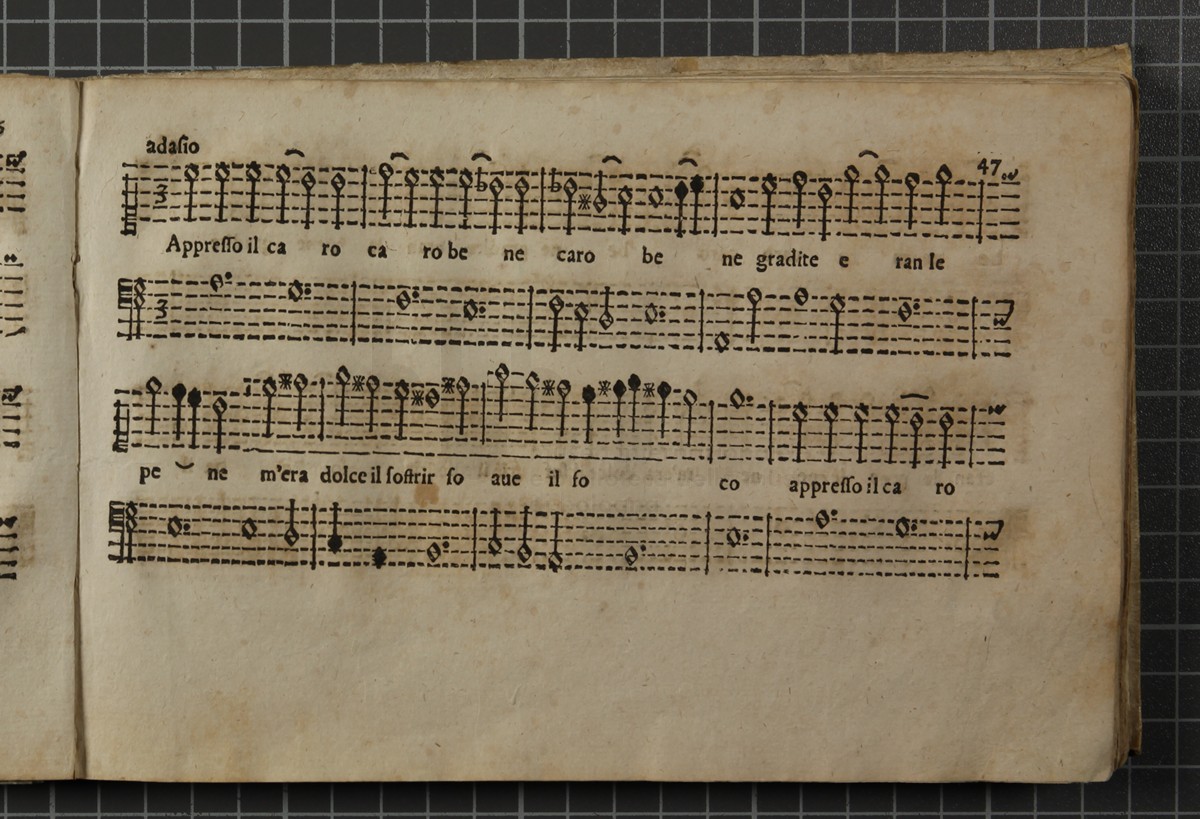 adaſio
47
3
Appreſſo il ca ro ca ro be ne caro be ne gradite e ran le
3
pe ne m'era dolce il ſoſtrir ſo aue il fo co appreſſo il ca ro